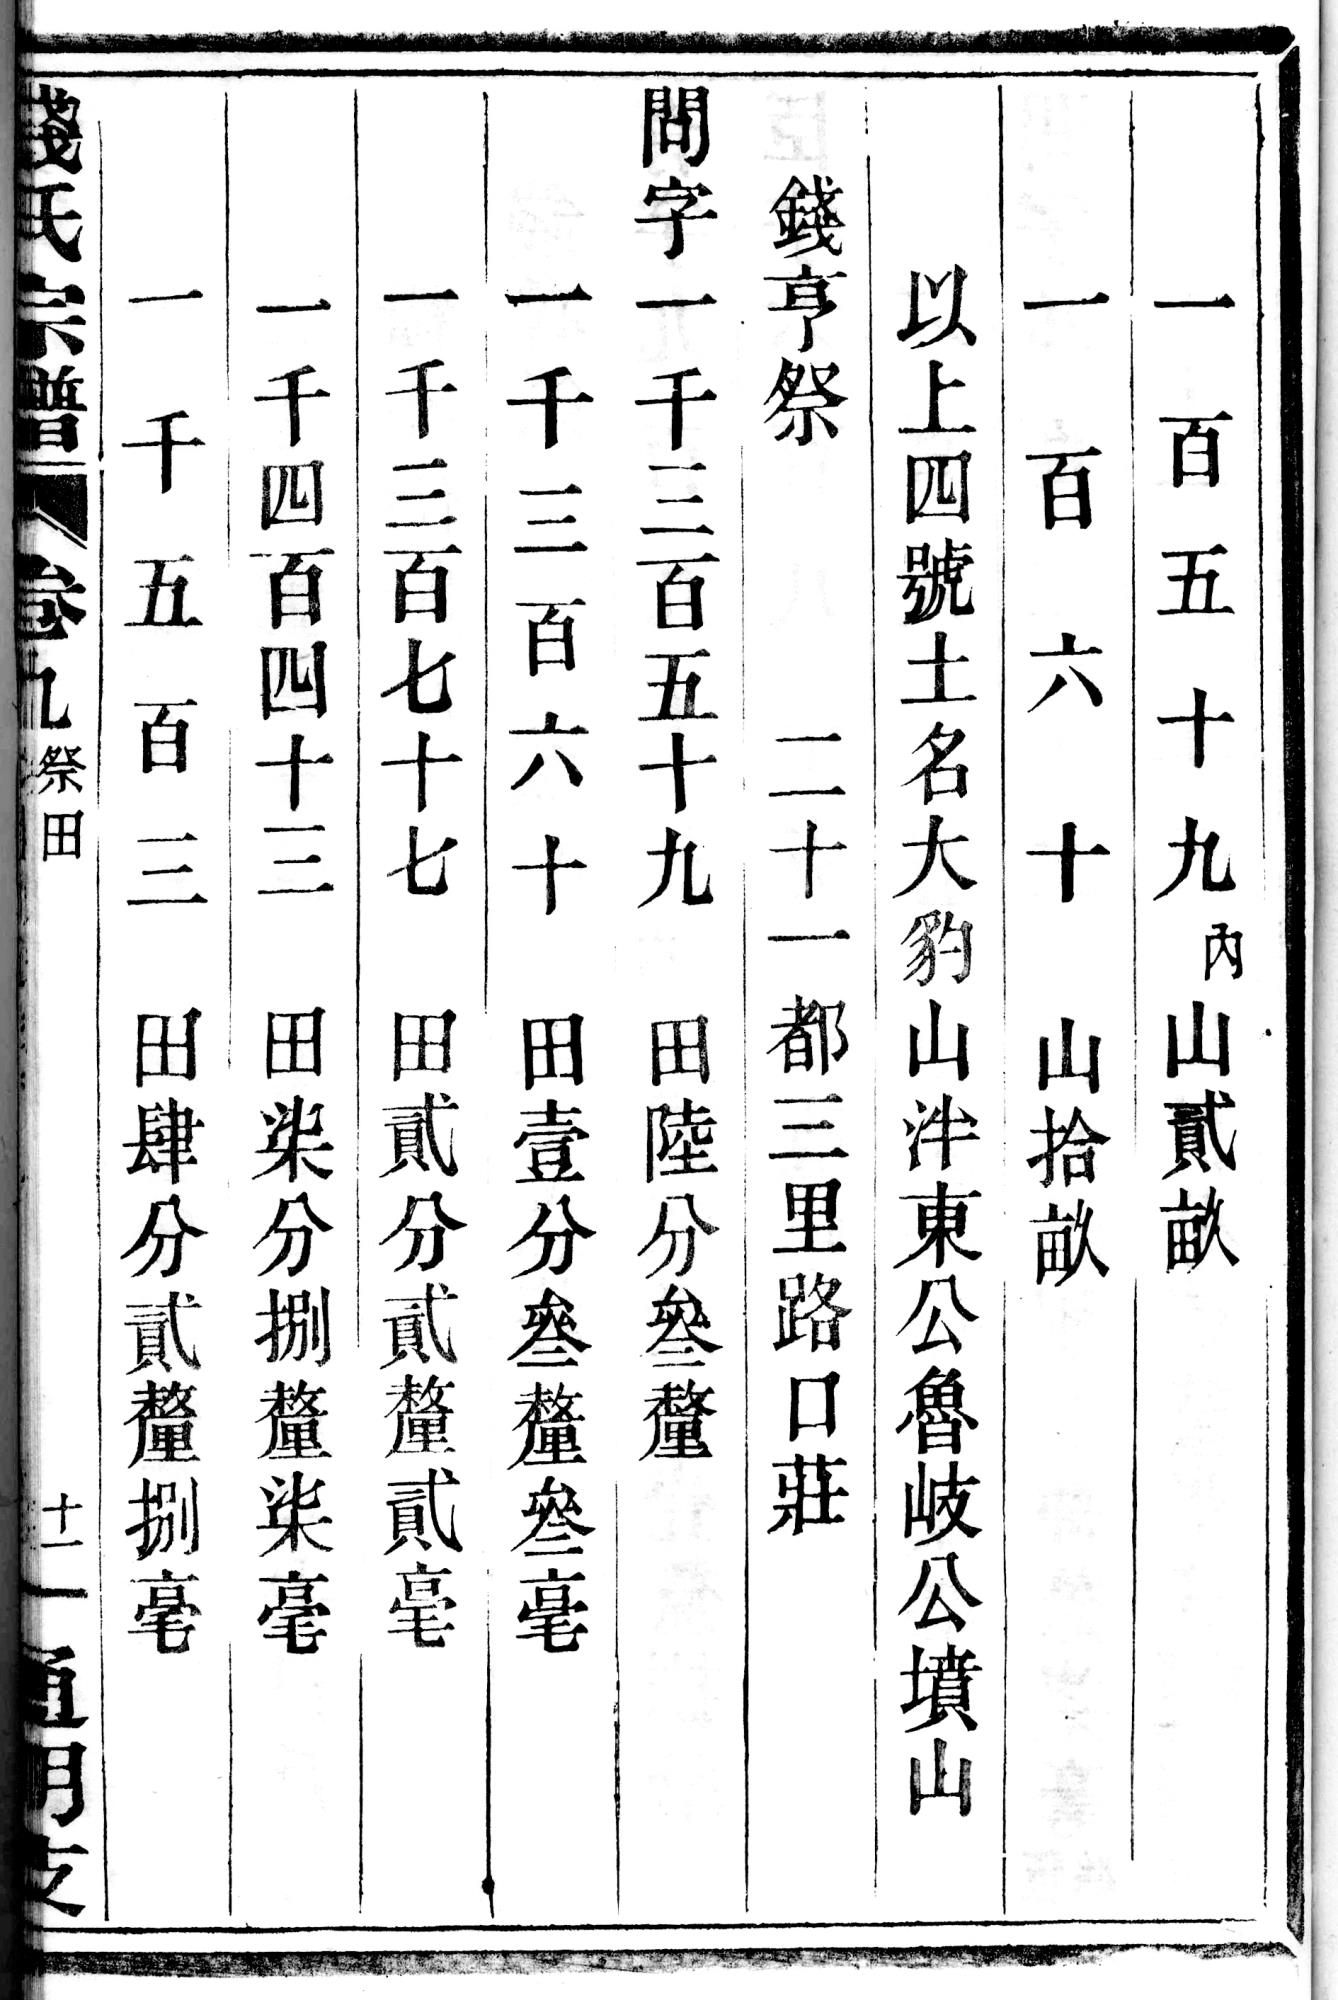 一百五十九內山貳畝
一百六十　山拾畝
以上四號土名大豹山泮東公魯岐公墳山
錢亨祭　二十一都三里路口莊
問字一千三百五十九　田陸分叄釐
一千三百六十　田壹分叄釐叄毫
一千三百七十七　田貳分貳釐貳毫
一千四百四十三　田柒分捌釐柒毫
一千五百三　田肆分貳釐捌毫
錢氏宗譜　卷九　祭田　十一　通明支